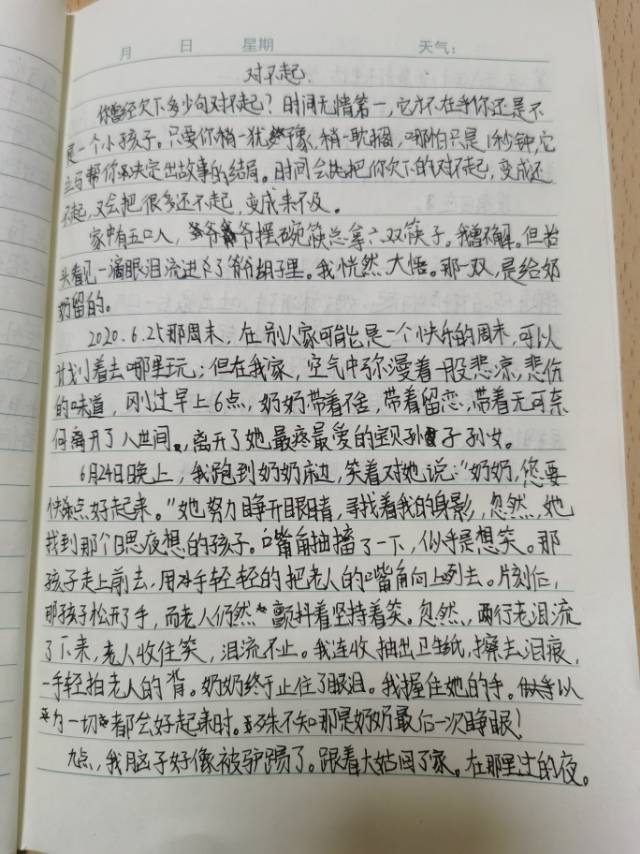 月 日 星期 天气：
对不起.
你曾经欠下多少句对不起？时间无情第一，它才不在乎你还是不
是一个小孩子。只要你稍一犹豫，稍一耽搁，哪怕只是1秒钟，它
立马帮你决定出故事的结局。时间会把你欠下的对不起，变成还
不起，又会把很多还不起，变成来不及。
家中有五口人，爷爷摆碗筷总拿六双筷子，我曾不解。但抬
头看见一滴眼泪流进了爷爷胡子里。我恍然大悟。那一双，是给奶
奶留的。
2020.6.25那周末，在别人家可能是一个快乐的周末，可以
计划着去哪里玩；但在我家，空气中弥漫着一股悲凉，悲伤
的味道，刚过早上6点，奶奶带着不舍，带着留恋，带着无可奈
何离开了人世间，离开了她最疼最爱的宝贝孙子孙女。
6月24日晚上，我跑到奶奶床边，笑着对她说：“奶奶，您要
快点好起来。”她努力睁开眼睛，寻找着我的身影，忽然，她
找到那个日思夜想的孩子。嘴角抽搐了一下，似乎是想笑。那
孩子走上前去，用手轻轻的把老人的嘴角向上列去。片刻后，
那孩子松开了手，而老人仍然颤抖着坚持着笑。忽然，两行老泪流
了下来，老人收住笑，泪流不止。我连收抽出卫生纸，擦去泪痕，
一手轻拍老人的背。奶奶终于止住了眼泪。我握住她的手。以
为一切都会好起来时。殊不知那是奶奶最后一次睁眼！
九点，我脑子好像被驴踢了。跟着大姑回了家。在那里过的夜。